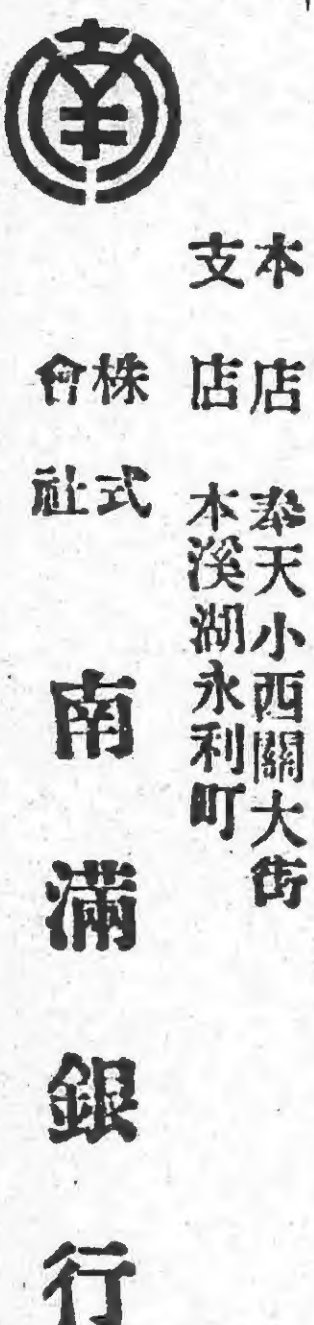 本店 奉天小西關大街
支店 本溪湖永利町
株式會社 南滿銀行
南